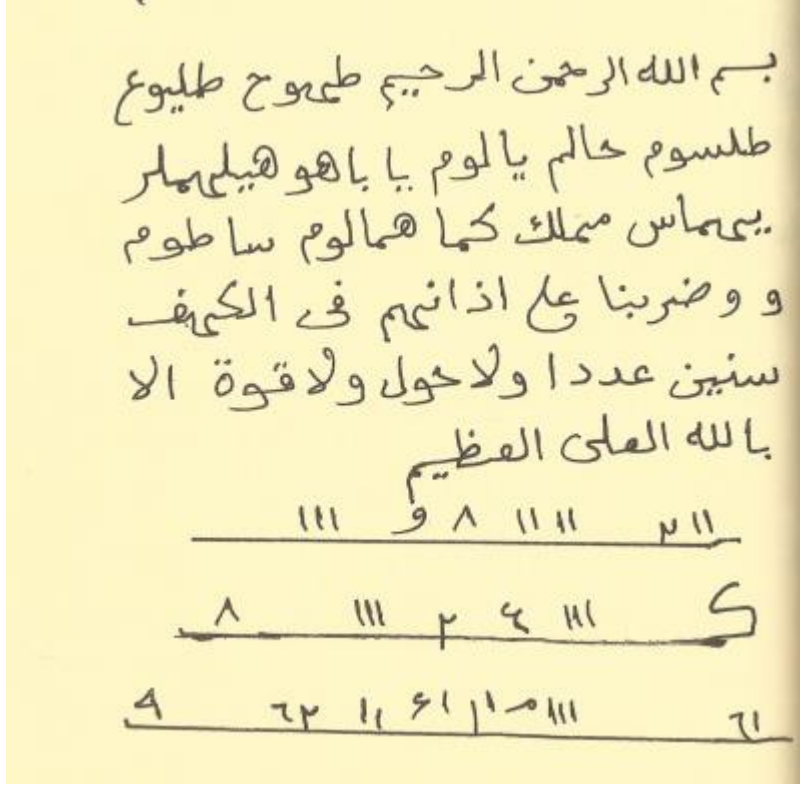 بسم الله الرحمن الرحيم طيهوج طليوع
طلسوم حالم يالوم يا باهو هيليهملر
يهماس مهلك كما همالوم ساطوم
و وضربنا علي اذانهم فى الكهف
سنين عددا ولاحول ولا قوة الا
بالله العلى العظيم
١١ ٢ ١١ ١١ ٨ و ١١١
ک ١١١ ٤ ٢ ١١١ ٨